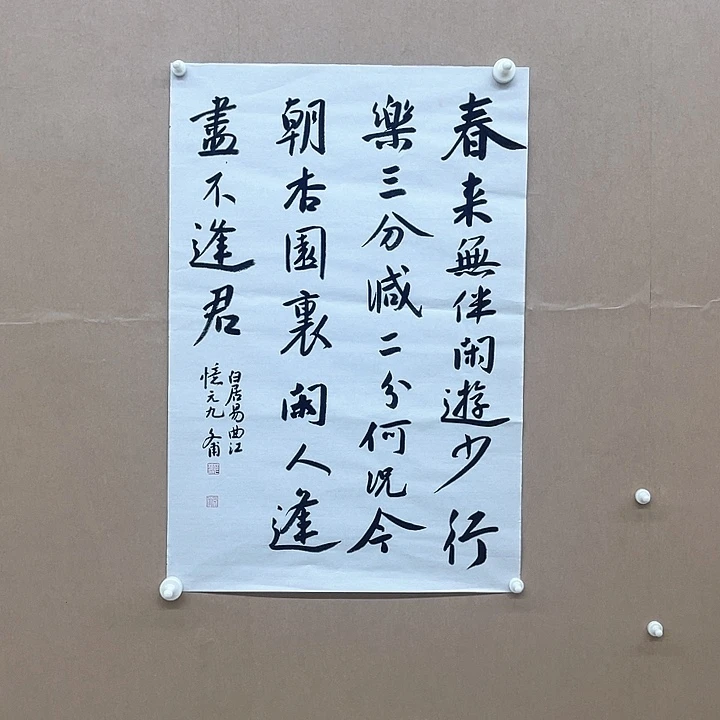 春来無伴閑遊少行
樂三分減二分何况今
朝杏園裏閑人逢
盡不逢君
白居易曲江
憶元九